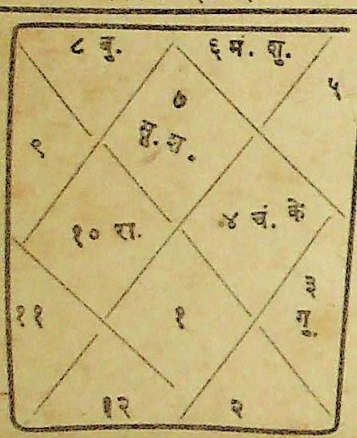 ८ बु.
६ मं. शु.
७
५
सू. श.
९
१० रा.
४ चं. के
३
गु.
११
१
१२
२